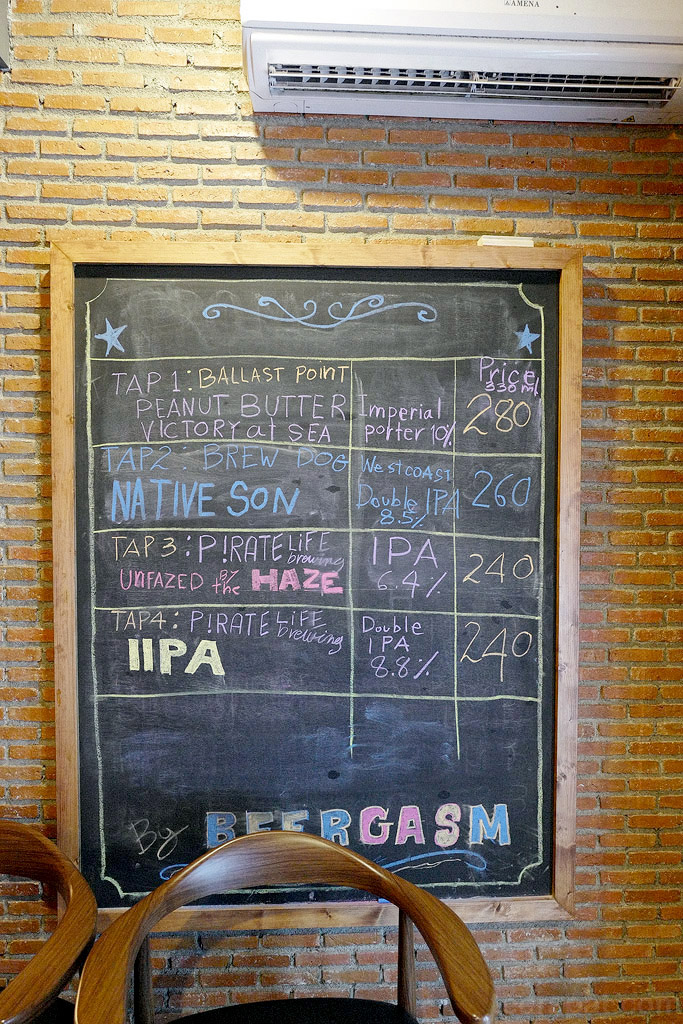 AMENA
Price
330 ml
TAP 1: BALLAST POINT
PEANUT BUTTER
VICTORY at SEA
Imperial
porter 10%
280
TAP2: BREW DOG
NATIVE SON
Westcoast
Double IPA
8.5%
260
TAP3: P!RATE LiFE
brewing
UNFAZED by the HAZE
IPA
6.4%
240
TAP4: P!RATE LIFE
brewing
IIPA
Double
IPA
8.8%
240
By BEERGASM